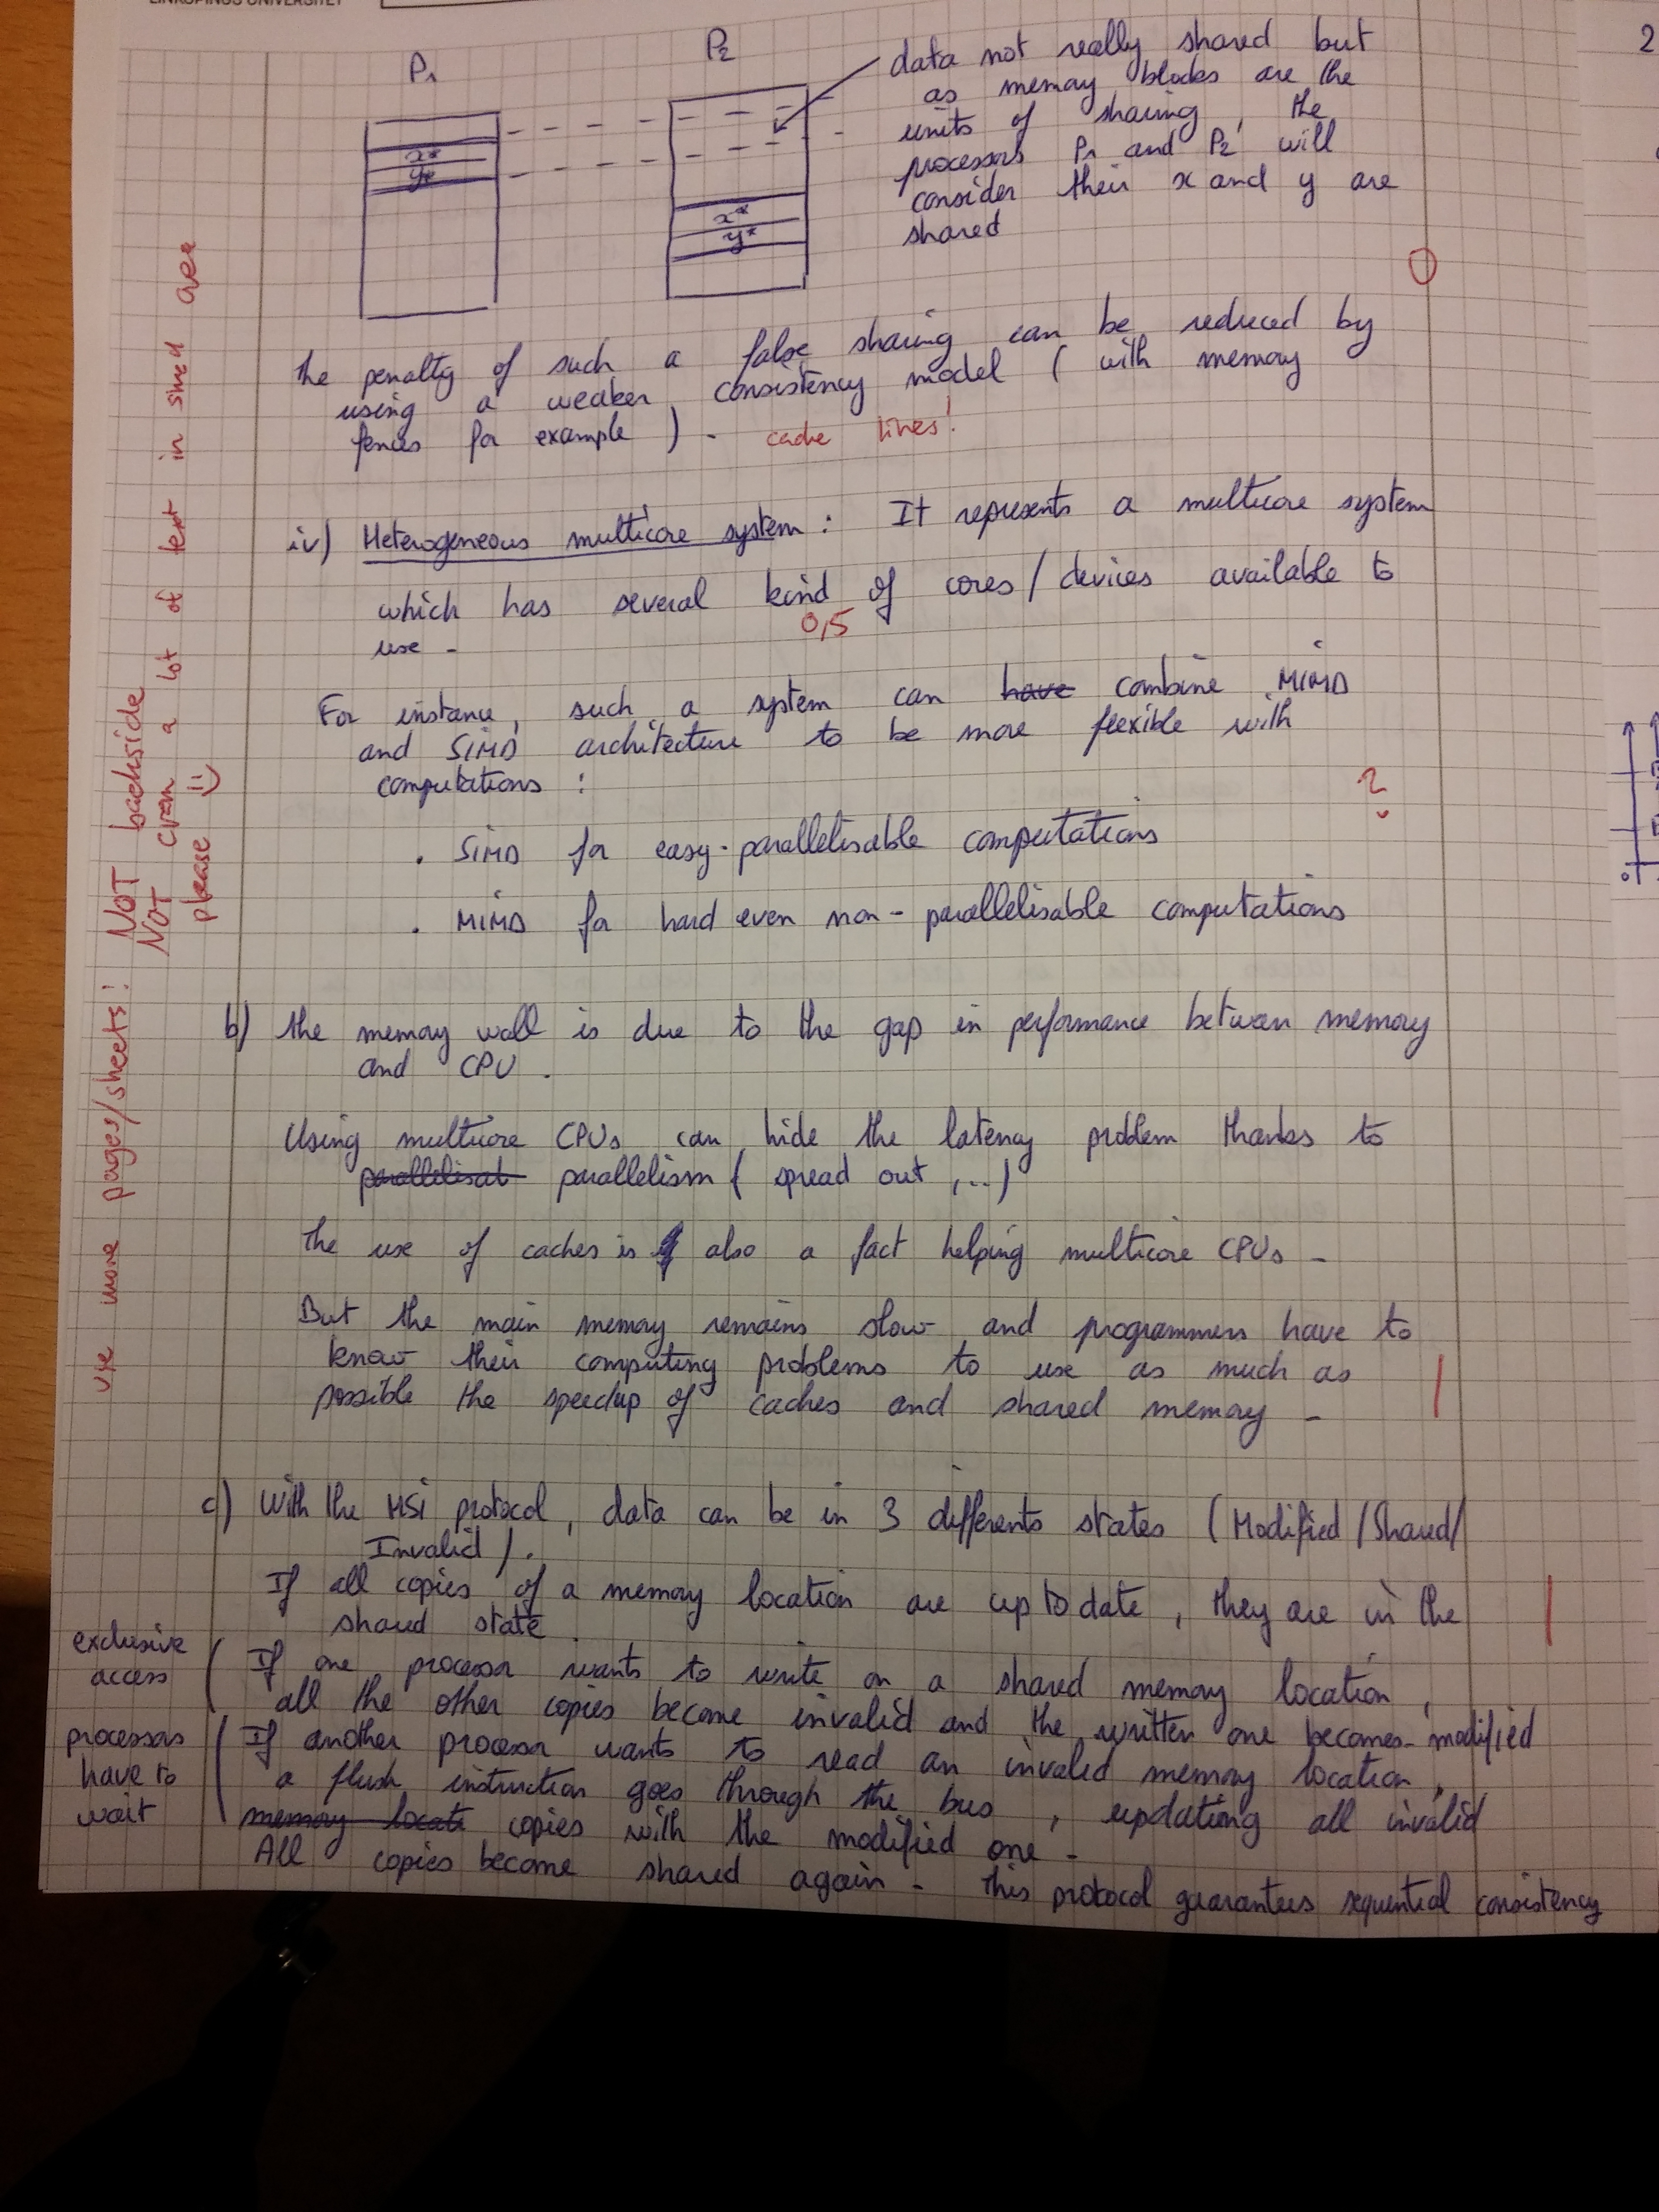 LINKÖPINGS UNIVERSITET
P1
P2
x*
y*
x*
y*
data not really shared but
as memory blocks are the
units of sharing, the
processors P1 and P2 will
consider their x and y are
shared
0
the penalty of such a false sharing can be reduced by
using a weaker consistency model ( with memory
fences for example ) .
cache lines!
iv) Heterogeneous multicore system : It represents a multicore system
which has several kind of cores / devices available to
0,5
use .
For instance, such a system can have combine MIMD
and SIMD architecture to be more flexible with
computations :
?
. SIMD for easy-parallelisable computations
. MIMD for hard even non-parallelisable computations
b) the memory wall is due to the gap in performance between memory
and CPU .
Using multicore CPUs can hide the latency problem thanks to
parallelisat parallelism ( spread out ,...)
the use of caches is also a fact helping multicore CPUs .
But the main memory remains slow and programmers have to
know their computing problems to use as much as
possible the speedup of caches and shared memory .
|
c) With the MSI protocol, data can be in 3 differents states (Modified/Shared/
Invalid ) .
If all copies of a memory location are up to date, they are in the
shared state .
|
exclusive
access
If one processor wants to write on a shared memory location,
all the other copies become invalid and the written one becomes modified
processors
have to
wait
If another processor wants to read an invalid memory location,
a flush instruction goes through the bus , updating all invalid
memory locati copies with the modified one .
All copies become shared again . this protocol guarantees sequential consistency
use more pages/sheets! NOT backside
NOT cram a lot of text in sined area
please
2
0